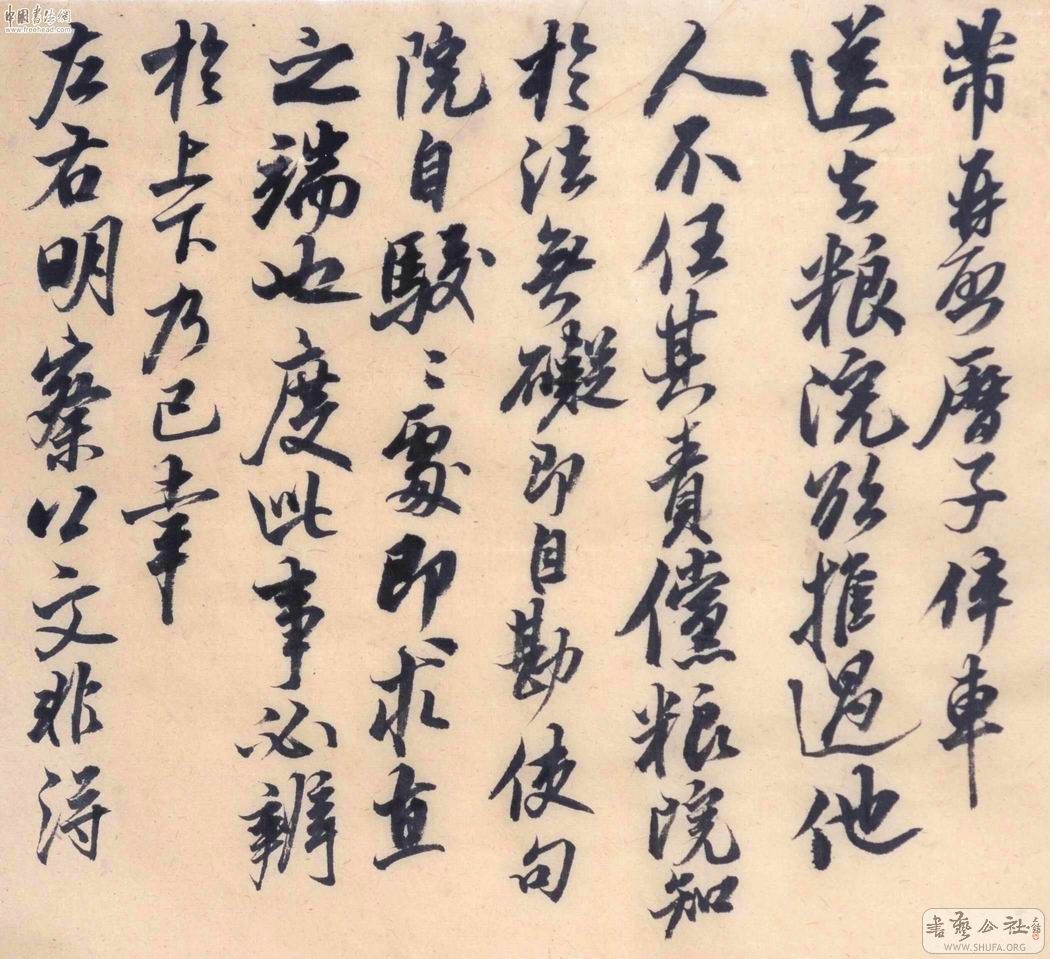 帶再曆子伻車
送去粮院欲推過他
人不任其責儻粮院知
於法無礙即自勘使句
院自駮〻處即求直
之端也度此事必辨
於上下乃已幸
左右明察公文非得
中国书法网
www.freehead.com
書藝公社
WWW.SHUFA.ORG